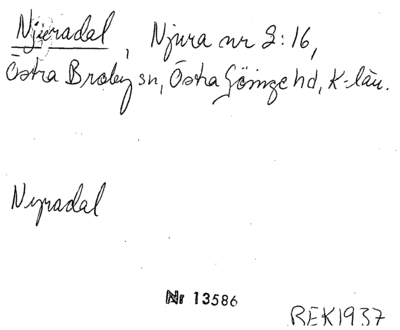 Njuradal, Njura nr 2:16,
Östra Broby sn, Östra Göinge hd, K-län.
Nyradal
Nr 13586
REK1937